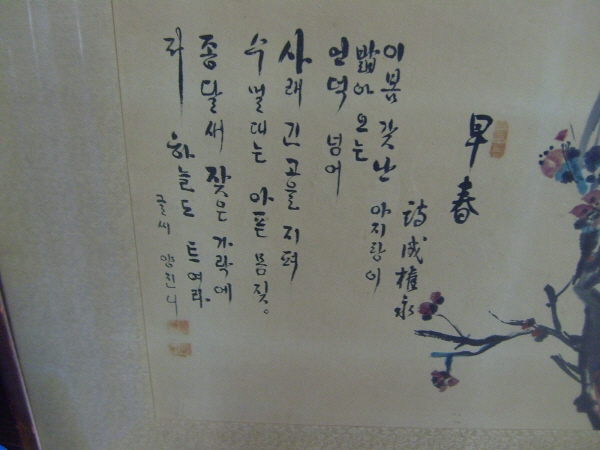 早春
詩 成權永
이봄 갓난 아지랑이
밟아 오는
언덕 넘어
사래 긴 고을 지펴
수멀대는 아픈 몸짓.
종달새 잦은 가락에
하늘도 트여라.
글씨